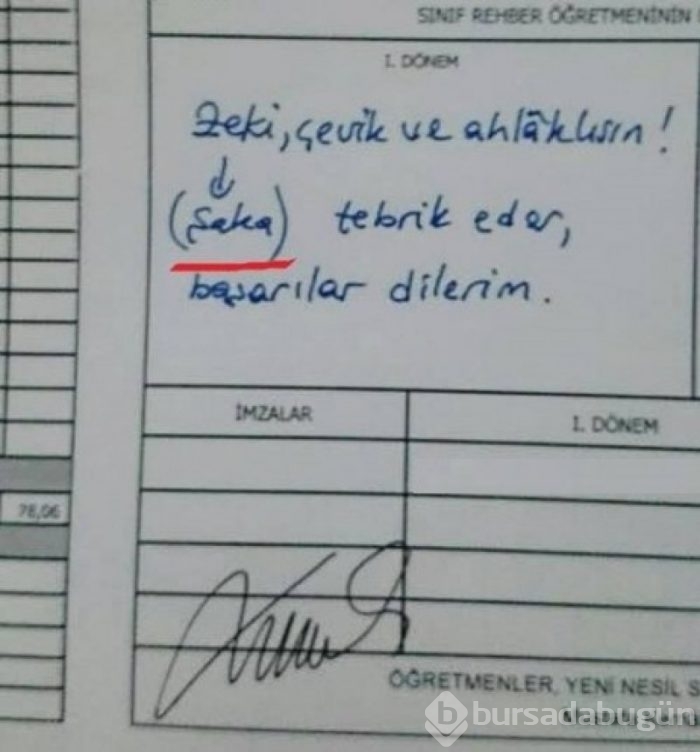 SINIF REHBER ÖĞRETMENİNİN
I. DÖNEM
Zeki, çevik ve ahlâklısın!
(Şaka) tebrik eder,
başarılar dilerim.
İMZALAR
I. DÖNEM
78,06
ÖĞRETMENLER, YENİ NESİL S
bursadabugün